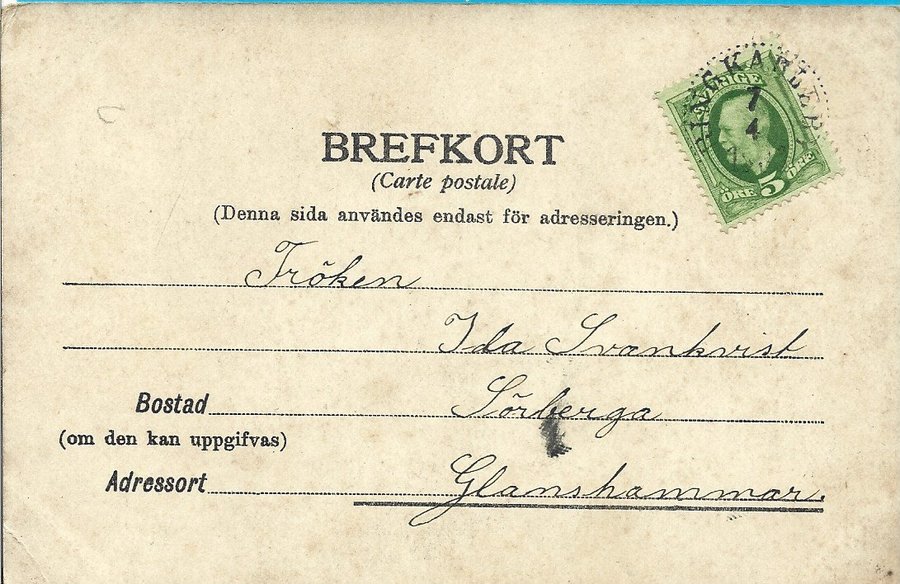 BREFKORT
(Carte postale)
(Denna sida användes endast för adresseringen.)
SVERIGE
ÖRE 5 ÖRE
7
4
Fröken
Ida Svankvist
Bostad Sörberga
(om den kan uppgifvas)
Adressort Glanshammar.